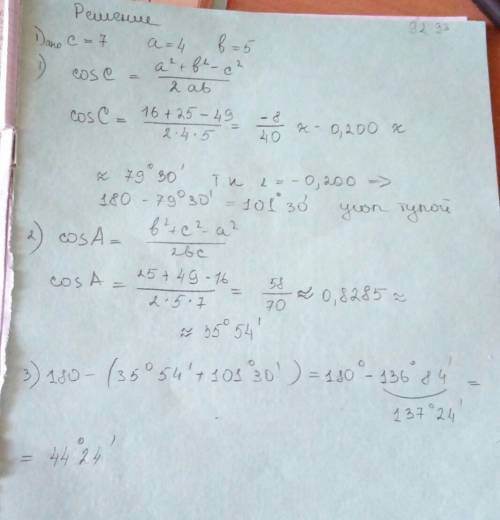 Решение
1) Дано c = 7 a = 4 b = 5
1) cosC = a² + b² - c² / 2ab
cosC = 16 + 25 - 49 / 2·4·5 = -8 / 40 ≈ - 0,200 ≈
≈ 79°30' т к = - 0,200 =>
180 - 79°30' = 101°30' угол тупой
2) cosA = b² + c² - a² / 2bc
cosA = 25 + 49 - 16 / 2·5·7 = 58 / 70 ≈ 0,8285 ≈
≈ 35°54'
3) 180 - (35°54' + 101°30') = 180° - 136°84' =
137°24'
= 44°24'